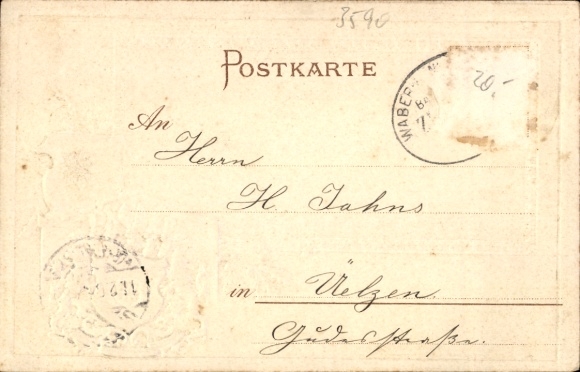 3590
POSTKARTE
20,-
WABERN
An
Herrn
H. Jahns
in Üelzen.
Gudesstraße.